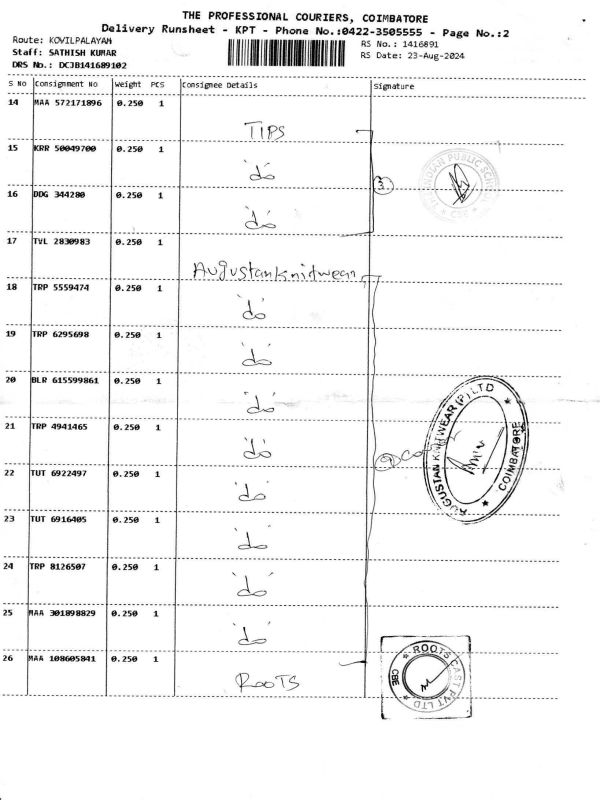 THE PROFESSIONAL COURIERS, COIMBATORE
Delivery Runsheet - KPT - Phone No.:0422-3505555 - Page No.:2
Route: KOVILPALAYAM
RS No.: 1416891
Staff: SATHISH KUMAR
RS Date: 23-Aug-2024
DRS No.: DCJB141689102
S No Consignment No Weight PCS Consignee Details Signature
14 MAA 572171896 0.250 1
TIPS
15 KRR 50049700 0.250 1
'do'
16 DDG 344280 0.250 1
'do'
3
PUBLIC SCHOOL
CBE
17 TVL 2830983 0.250 1
Augustan Knitwear
18 TRP 5559474 0.250 1
'do'
19 TRP 6295698 0.250 1
'do'
20 BLR 615599861 0.250 1
'do'
21 TRP 4941465 0.250 1
'do'
9
AUGUSTAN KNITWEAR (P) LTD
COIMBATORE
22 TUT 6922497 0.250 1
'do'
23 TUT 6916405 0.250 1
'do'
24 TRP 8126507 0.250 1
'do'
25 MAA 301898829 0.250 1
'do'
26 MAA 108605841 0.250 1
ROOTS
ROOTS CAST PVT LTD
CBE